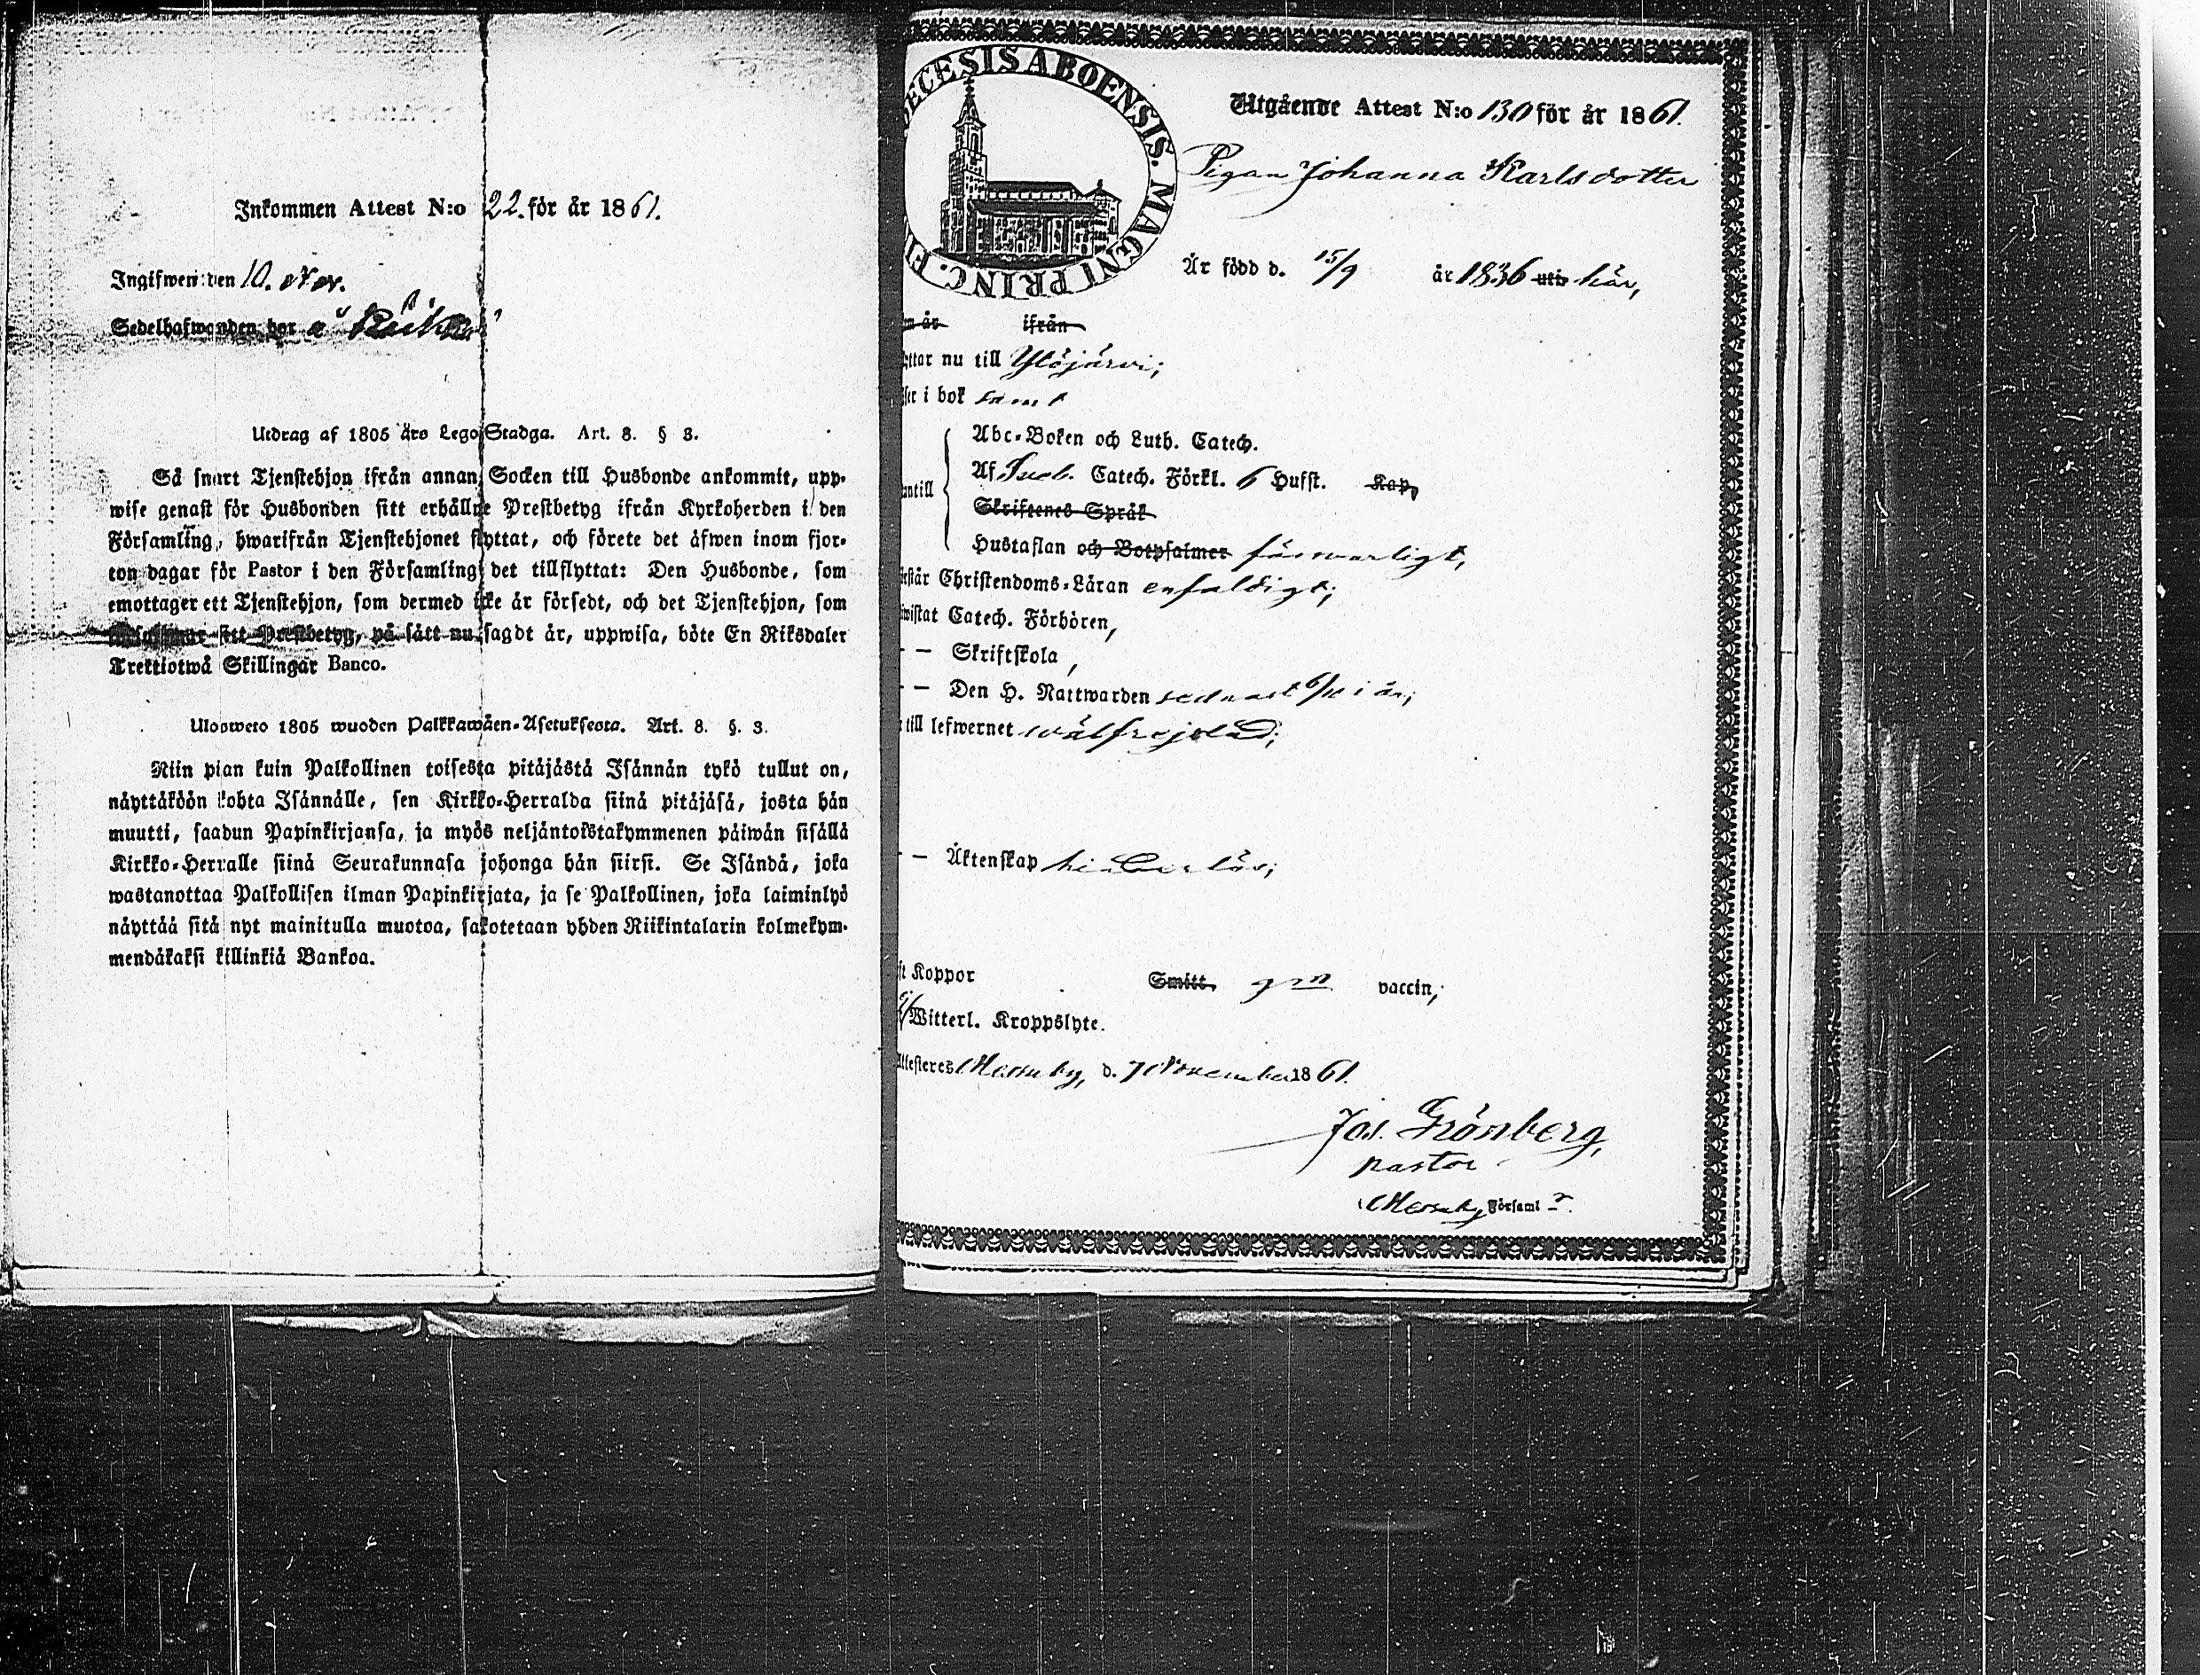 Inkommen Attest N:o 22. för år 1861.
Ingifwen den 10. Nov.
Sedelhafwanden bor å
Utdrag af 1805 års Lego Stadga. Art. 8. § 3.
Så snart Tjenstehjon ifrån annan Socken till Husbonde ankommit, upp-
wise genast för Husbonden sitt erhållne Prestbetyg ifrån Kyrkoherden i den
Församling, hwarifrån Tjenstehjonet flyttat, och förete det äfwen inom fjor-
ton dagar för Pastor i den Församling det tillflyttat: Den Husbonde, som
emottager ett Tjenstehjon, som dermed icke är försedt, och det Tjenstehjon, som
sitt Prestbetyg, på sätt nu sagdt är, uppwisa, böte En Riksdaler
Trettiotwå Skillingar Banco.
Ulosweto 1805 wuoden Palkkawäen-Asetuksesta. Art. 8. §. 3.
Niin pian kuin Palkollinen toisesta pitäjästä Isännän tykö tullut on,
näyttäköön kohta Isännälle, sen Kirkko-Herralda siinä pitäjäsä, josta hän
muutti, saadun Papinkirjansa, ja myös neljäntoistakymmenen päiwän sisällä
Kirkko-Herralle siinä Seurakunnasa johonga hän siirsi. Se Isändä, joka
wastanottaa Palkollisen ilman Papinkirjata, ja se Palkollinen, joka laiminlyö
näyttää sitä nyt mainitulla muotoa, sakotetaan yhden Riikintalarin kolmekym-
mendäkaksi killinkiä Bankoa.
ECESIS ABOENSIS. MAGNI PRINC. FI
Utgående Attest N:o 130 för år 1861.
Pigan Johanna Karlsdotter
Är född d. 15/9 år 1836 uti här,
n år ifrån
ttar nu till Ylöjärvi;
ser i bok samt
Abc-Boken och Luth. Catech.
Af Sveb. Catech. Förkl. 6 Hufst. Kap,
antill
Skriftenes Språk
Hustaflan och Botpsalmer försvarligt,
rstår Christendoms-Läran enfaldigt;
wistat Catech. Förhören,
- – Skriftskola,
- – Den H. Nattwarden sednast 6/10 i år;
till lefwernet wälfrejdad;
- – Äktenskap hinderlös;
t Koppor Smitt, gm vaccin,
Witterl. Kroppslyte.
ttesteres Messuby, d. 7 November 1861.
Jos. Grönberg,
pastor
Messuby Församl